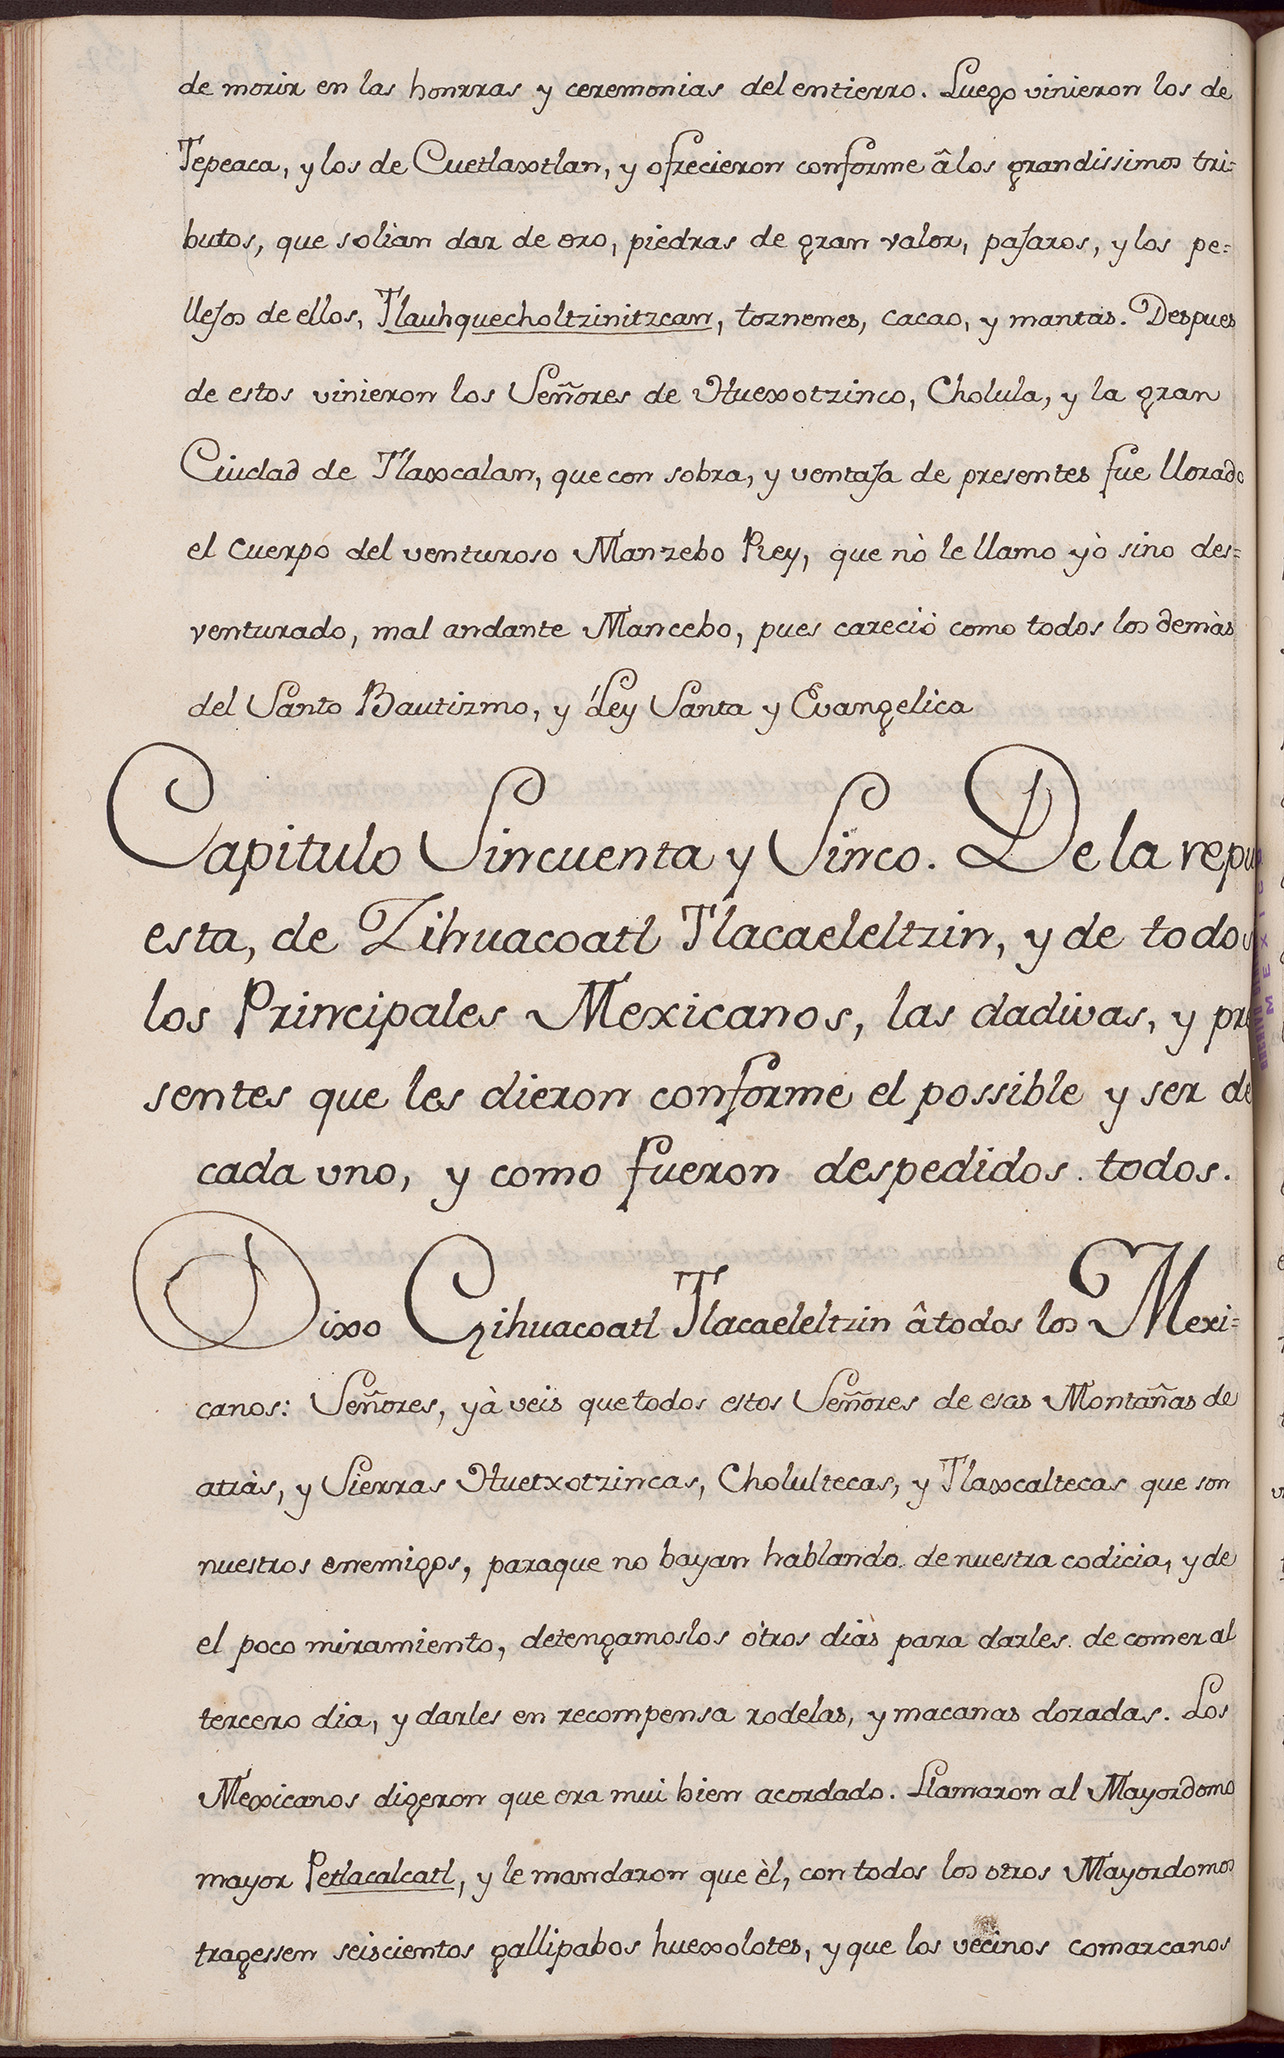 de morir en las honrras y ceremonias del entierro. Luego vinieron los de
Tepeaca, y los de Cuetlaxtlan, y ofrecieron conforme â los grandissimos tri=
butos, que solian dar de oro, piedras de gran valor, pajaros, y los pe=
llejos de ellos, Tlauhquecholtzinitzcan, toznenes, cacao, y mantas. Despues
de estos vinieron los Señores de Huexotzinco, Cholula, y la gran
Ciudad de Tlaxcalan, que con sobra, y ventaja de presentes fue llorado
el cuerpo del venturoso Manzebo Rey, que nò le llamo yò sino des=
venturado, mal andante Mancebo, pues careciò como todos los demàs
del Santo Bautizmo, y Ley Santa y Evangelica
Capitulo Sincuenta y Sinco. De la repu
esta, de Zihuacoatl Tlacaeleltzin, y de todos
los Principales Mexicanos, las dadivas, y pre
sentes que les dieron conforme el possible y ser de
cada vno, y como fueron despedidos todos.
Dixo Cihuacoatl Tlacaeleltzin â todos los Mexi=
canos: Señores, yà veis que todos estos Señores de esas Montañas de
atràs, y Sierras Huetxotzincas, Cholultecas, y Tlaxcaltecas que son
nuestros enemigos, paraque no bayan hablando de nuestra codicia, y de
el poco miramiento, detengamoslos òtros dias para darles de comer al
tercero dia, y darles en recompensa rodelas, y macanas doradas. Los
Mexicanos digeron que era mui bien acordado. Llamaron al Mayordomo
mayor Petlacalcatl, y le mandaron que èl, con todos los otros Mayordomos
tragessen seiscientos gallipabos huexolotes, y que los vecinos comarcanos